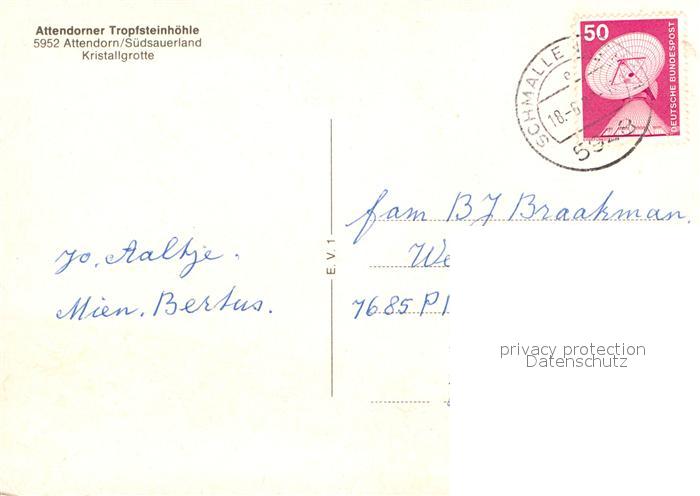 Attendorner Tropfsteinhöhle
5952 Attendorn/Südsauerland
Kristallgrotte
50
DEUTSCHE BUNDESPOST
SCHMALLE
18.-6.
fam BJ Braakman.
We
7685 P
Jo. Aaltje.
Mien. Bertus.
E.V. 1
privacy protection
Datenschutz